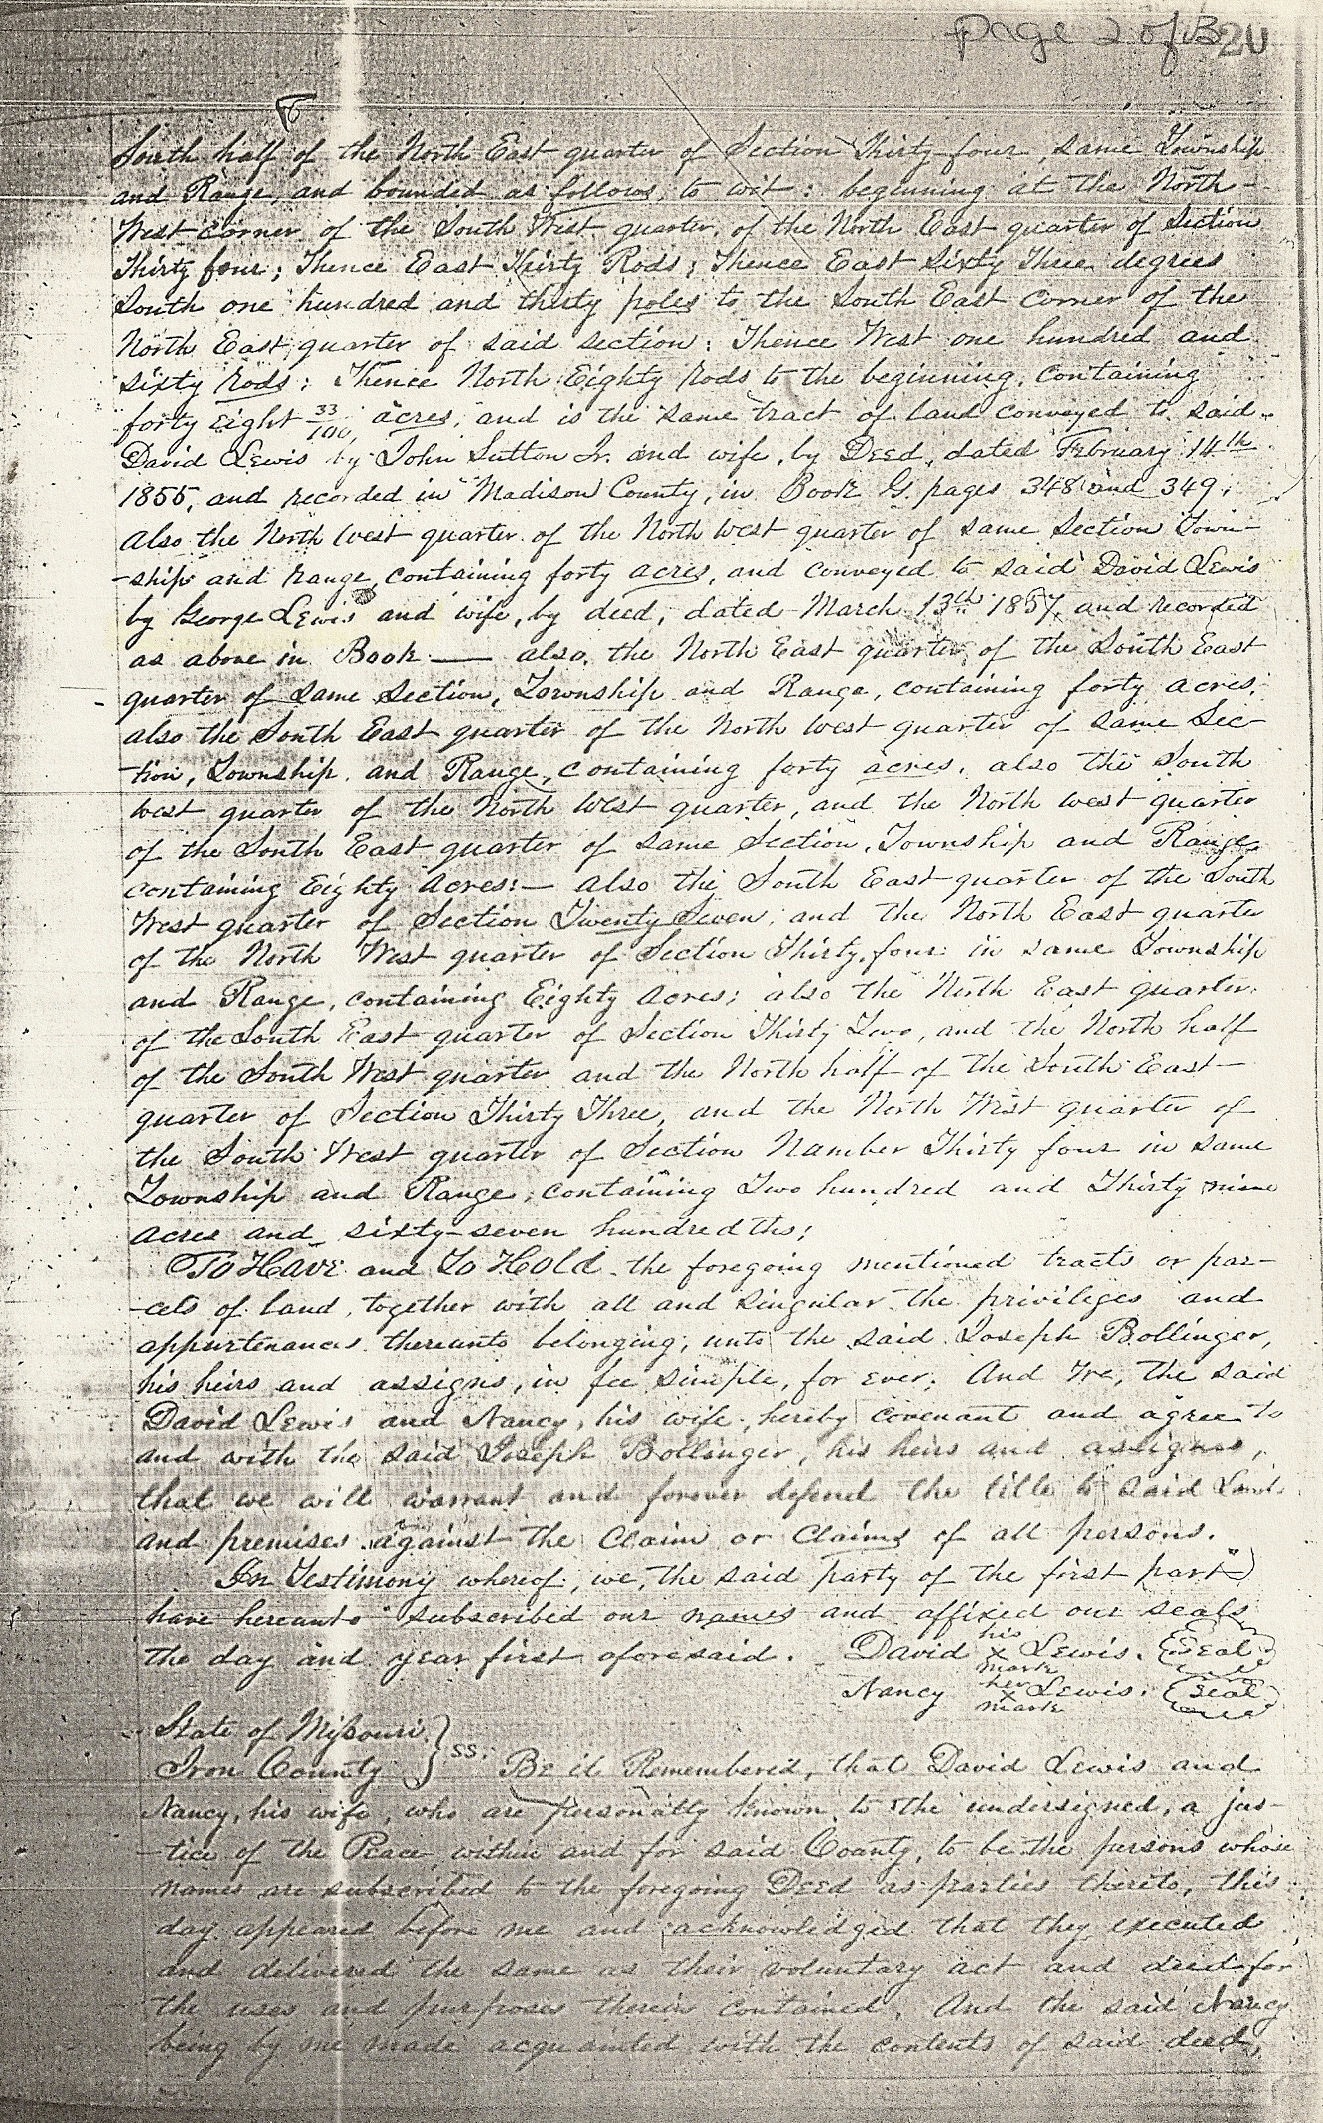 page 2 of 3
20
South half of the North East quarter of Section Thirty four, same Township
and Range, and bounded as follows, to wit: beginning at the North-
West corner of the South West quarter, of the North East quarter of Section
Thirty four; Thence East Thirty Rods; Thence East Sixty Three degrees
South one hundred and thirty poles to the South East corner of the
North East quarter of said section: Thence West one hundred and
sixty rods; Thence North Eighty rods to the beginning, containing
forty eight 33/100, acres, and is the same tract of land conveyed to said
David Lewis by John Sutton Jr. and wife, by Deed, dated February 14th
1855, and recorded in Madison County, in Book G. pages 348 and 349,
also the North West quarter of the North West quarter of same Section Town-
-ship and range, containing forty acres, and conveyed to said David Lewis
by George Lewis and wife, by deed, dated March 13th 1857, and recorded
as above in Book — also, the North East quarter, of the South East
quarter of same Section, Township and Range, containing forty acres,
also the South East quarter of the North West quarter of same Sec-
-tion, Township, and Range, containing forty acres, also the South
West quarter of the North West quarter, and the North West quarter
of the South East quarter of same Section, Township and Range
containing Eighty Acres:— also the South East quarter of the South
West quarter of Section Twenty Seven, and the North East quarter
of the North West quarter of Section Thirty four in same Township
and Range, containing Eighty Acres; also the North East quarter
of the South East quarter of Section Thirty Two, and the North half
of the South West quarter and the North half of the South East-
quarter of Section Thirty Three, and the North West quarter of
the South West quarter of Section Number Thirty four in same
Township and Range, containing Two hundred and Thirty nine
acres and sixty-seven hundredths;
To Have and To Hold the foregoing mentioned tracts or par-
-cels of land, together with all and singular the privileges and
appurtenances thereunto belonging, unto the said Joseph Bollinger,
his heirs and assigns, in fee simple, for ever; And We, the said
David Lewis and Nancy, his wife, hereby covenant and agree to
and with the said Joseph Bollinger, his heirs and assigns,
that we will warrant and forever defend the title to said Land
and premises against the Claim or Claims of all persons.
In Testimony whereof, we, the said party of the first part
have hereunto subscribed our names and affixed our seals
the day and year first aforesaid. David his x mark Lewis. Seal
Nancy her x mark Lewis. Seal
State of Missouri }
Iron County } ss. Be it Remembered, that David Lewis and
Nancy, his wife, who are personally known to the undersigned, a jus-
-tice of the Peace within and for said County, to be the persons whose
names are subscribed to the foregoing Deed as parties thereto, this
day appeared before me and acknowledged that they executed
and delivered the same as their voluntary act and deed for
the uses and purposes therein contained. And the said Nancy
being by me made acquainted with the contents of said deed,